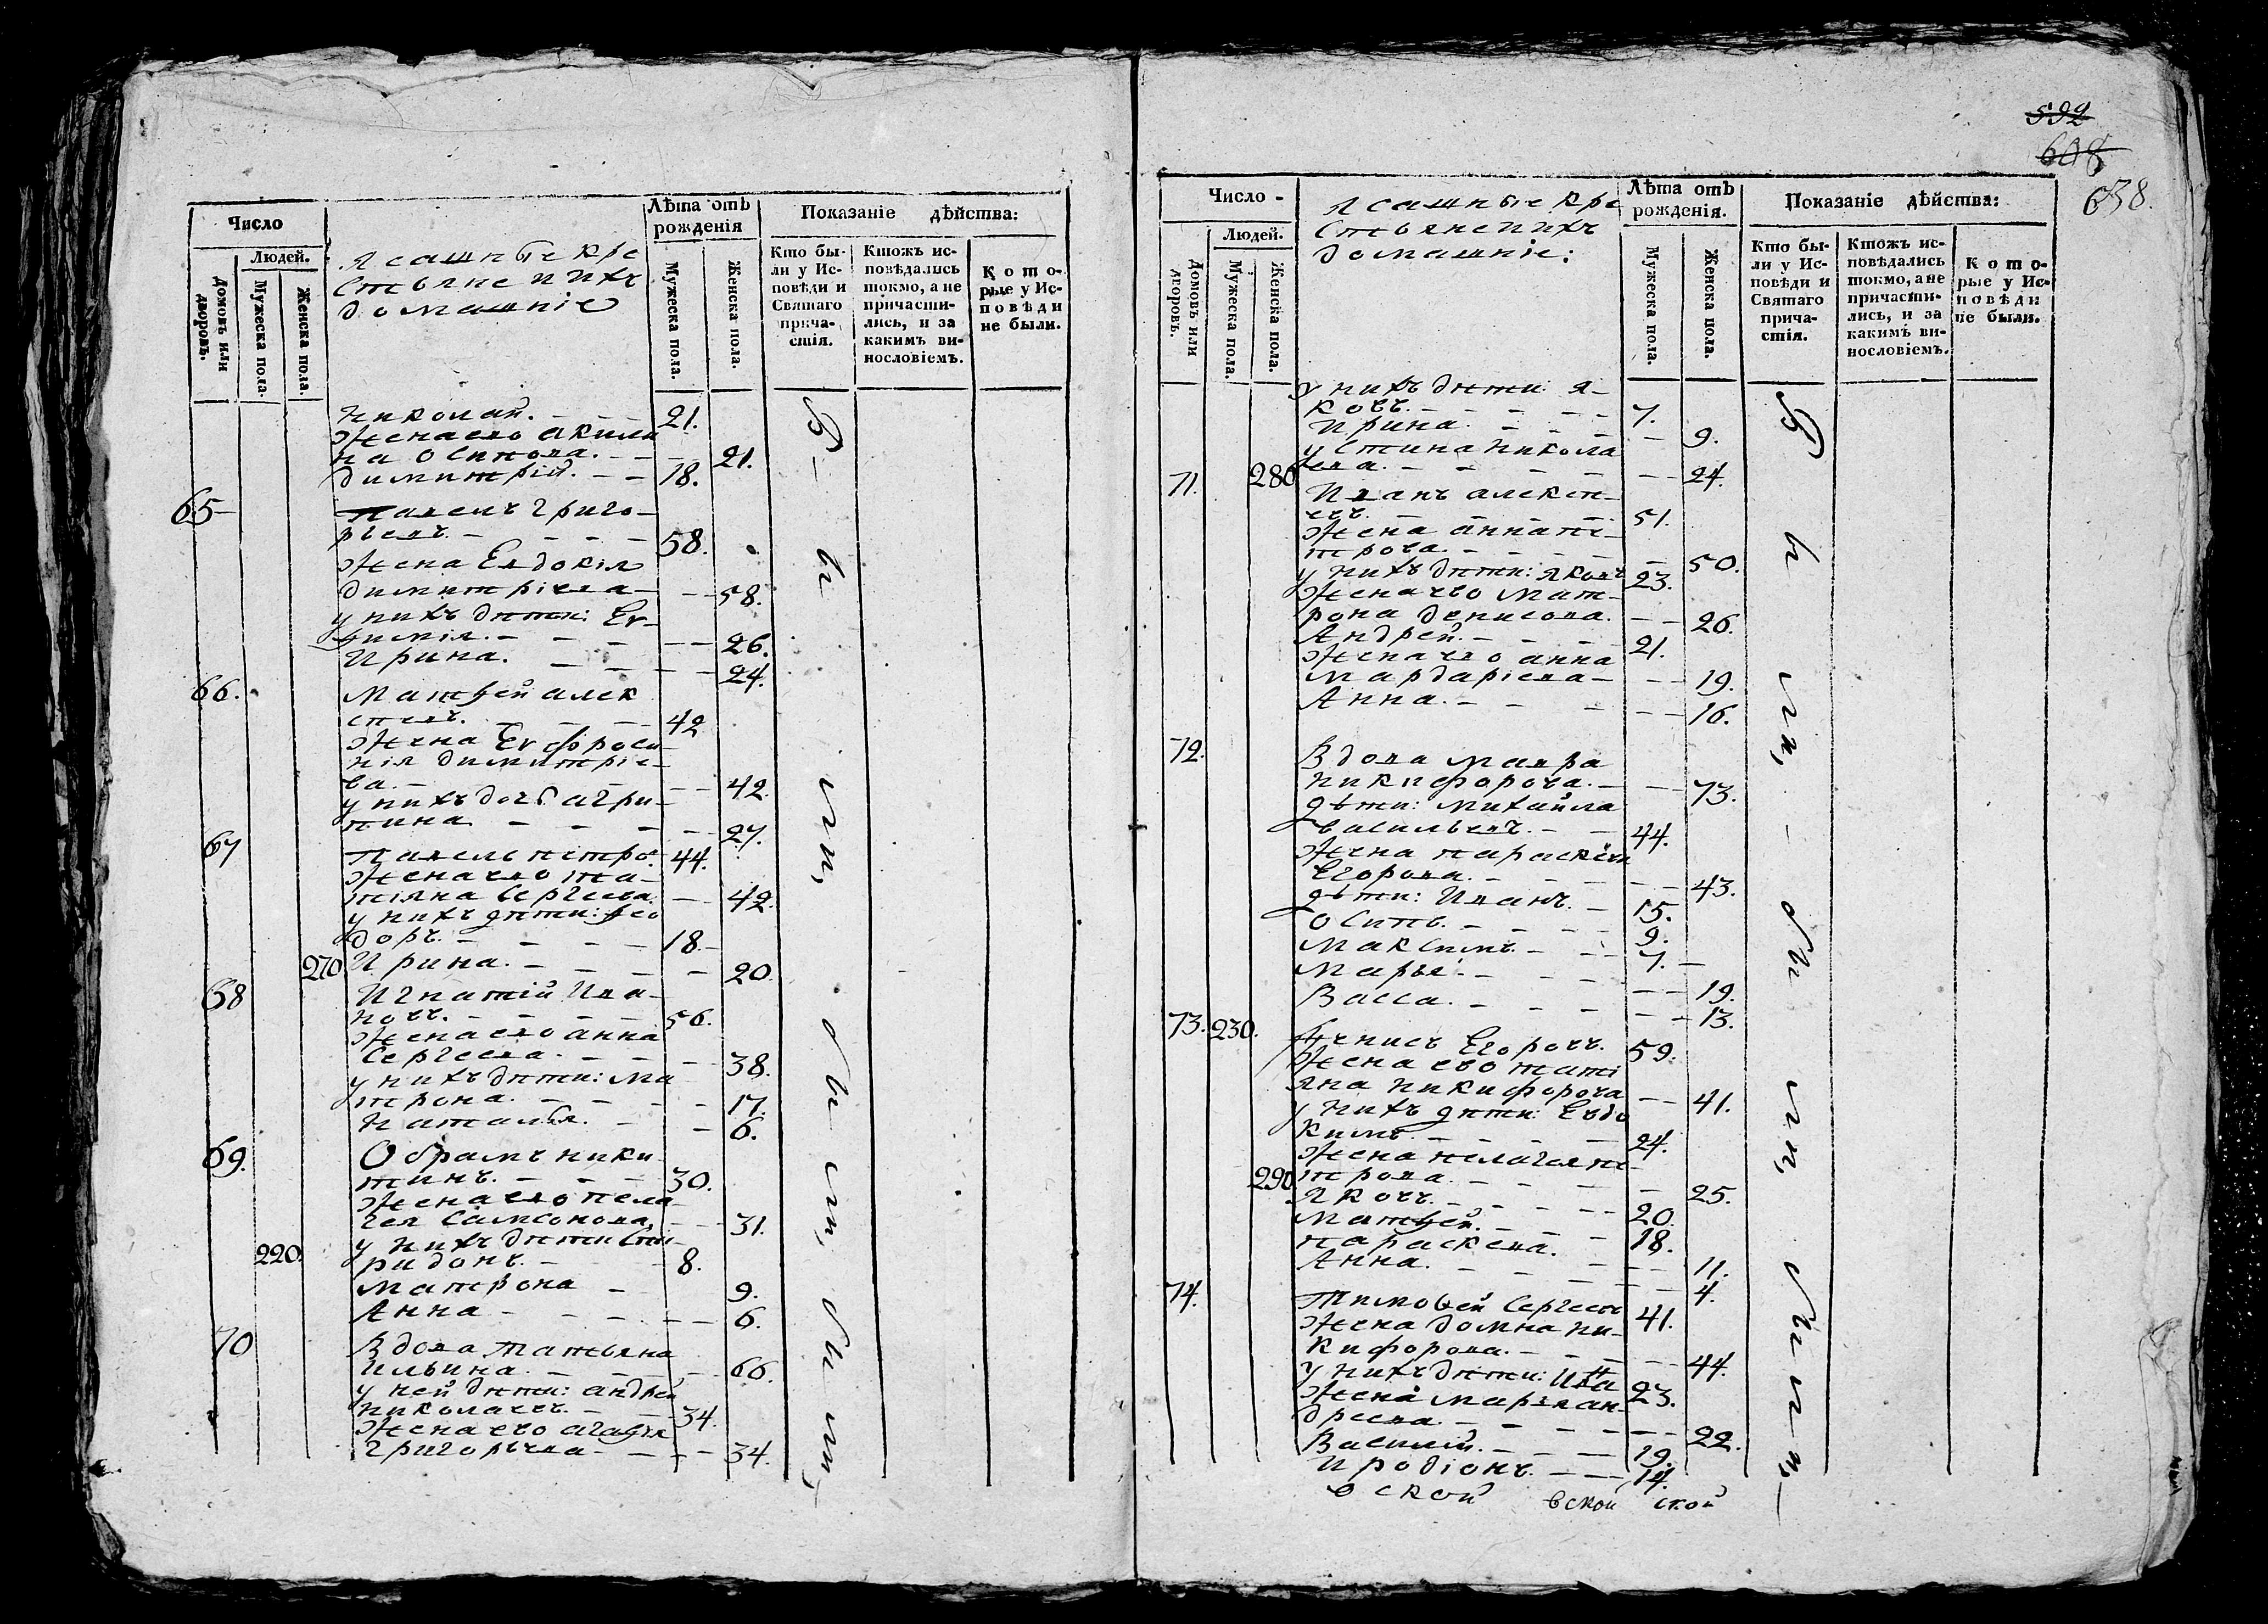 Число
Людей.
Домовъ или дворовъ.
Мужеска пола.
Женска пола.
Ясашные кре
стьяне и ихъ
домашніе
Лѣта отъ
рожденія
Мужеска пола.
Женска пола.
Показаніе дѣйства:
Кто бы-
ли у Ис-
повѣди и
Святаго
прича-
стія.
Ктожъ ис-
повѣдались
токмо, а не
причасти-
лись, и за
какимъ ви-
нословіемъ.
Кото-
рые у Ис-
повѣди
не были.
Николай. 21.
Жена его Акили
на Осипова. 21.
Димитрій. 18.
65 Павелъ Григо-
рьевъ. 58.
Жена Евдокія
Димитріева 58.
у нихъ дѣти: Ев-
фимія. 26.
Ирина. 24.
66. Матфей Алек
сѣевъ. 42
Жена Евфроси-
нія Димитріе-
ва. 42.
у нихъ дочь Агри-
пина 27.
67 Павелъ Петро. 44.
Жена его Та-
тіяна Сергеева. 42.
у нихъ дѣти: Фео
доръ. 18.
270 Ирина. 20.
68 Игнатій Ива-
новъ. 56.
Жена его Анна
Сергеева. 38.
у нихъ дѣти: Ма
трона. 17.
Наталья. 6.
69. Обрамъ Ники-
тинъ. 30.
Жена его Пела-
гея Самсонова, 31.
у нихъ дѣти Спи-
220. ридонъ. 8.
Матрона 9.
Анна 6.
70 Вдова Татьяна
Ильина. 66.
у ней дѣти: Андрей
Николаевъ. 34.
Жена его Агафья
Григорьева 34.
Б ы ли, бы ли, бы ли,
592
608
638.
Число
Людей.
Домовъ или дворовъ.
Мужеска пола.
Женска пола.
Ясашные кре
стьяне и ихъ
домашніе:
Лѣта отъ
рожденія.
Мужеска пола.
Женска пола.
Показаніе дѣйства:
Кто бы-
ли у Ис-
повѣди и
Святаго
прича-
стія.
Ктожъ ис-
повѣдались
токмо, а не
причасти-
лись, и за
какимъ ви-
нословіемъ.
Кото-
рые у Ис-
повѣди
не были.
у нихъ дѣти: Я-
ковъ. 7.
Ирина. 9.
Устина Никола
280 ева. 24.
71. Иванъ Алексѣ-
евъ. 51.
Жена Анна Пе-
трова. 50.
у нихъ дѣти: Яковъ 23.
Жена его Мат-
рона Денисова. 26.
Андрей. 21.
Жена его Анна
Мардаріева 19.
Анна. 16.
72. Вдова Мавра
Никифорова. 73.
дѣти: Михайла
Васильевъ. 44.
Жена Параскева
Егорова. 43.
дѣти: Иванъ. 15.
Осипъ. 9.
Максимъ. 7.
Марья. 19.
Васса. 13.
73. 230. Денисъ Егоровъ. 59.
Жена его Таті
яна Никифорова 41.
у нихъ дѣти: Евдо
кимъ. 24.
Жена Пелагея Пе-
290. трова. 25.
Яковъ. 20.
Матфей. 18.
Параскева. 11.
Анна. 4.
74. Тимофей Сергеевъ 41.
Жена Домна Ни-
кифорова. 44.
у нихъ дѣти: 23.
Жена Марья Ан-
дреева. 22.
Василій. 19.
Иродіонъ. 14.
вской вской ской
Б ы ли, бы ли, были,